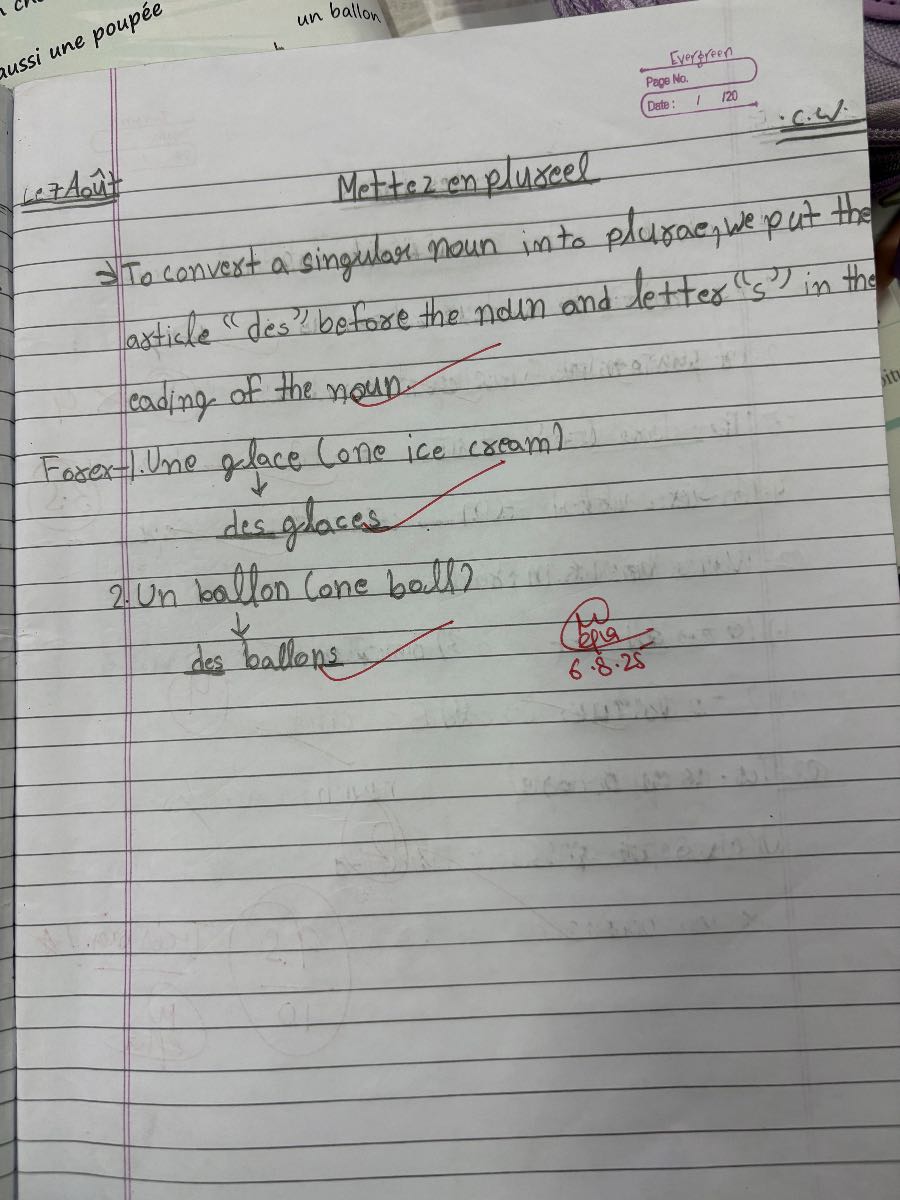 aussi une poupée
un ballon
Evergreen
Page No.
Date: / /20
C.W.
Le 7 Août
Mettez en plureel
→ To convert a singular noun into plurae, we put the
article "des" before the noun and letter "s" in the
eading of the noun.
For ex-1. Une glace (one ice cream)
↓
des glaces
2. Un ballon (one ball)
↓
des ballons
6.8.25